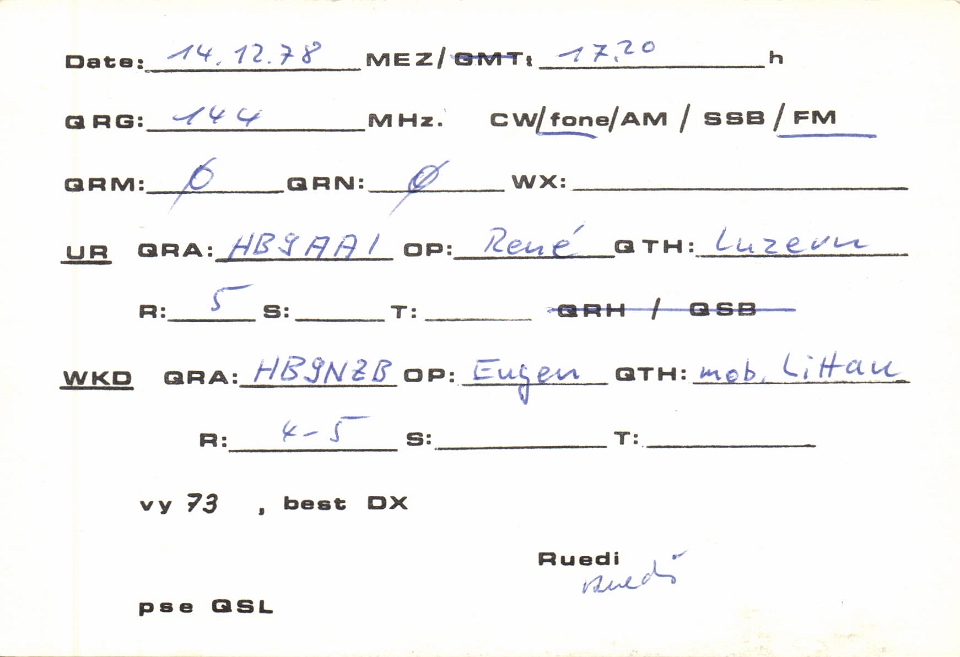 Date: 14.12.78 MEZ/GMT: 17.20 h
QRG: 144 MHz. CW/fone/AM / SSB / FM
QRM: Ø QRN: Ø WX:
UR QRA: HB9AAI OP: René QTH: Luzern
R: 5 S: T: QRH / QSB
WKD QRA: HB9NZB OP: Eugen QTH: mob. Littau
R: 4-5 S: T:
vy 73 , best DX
Ruedi
Ruedi
pse QSL